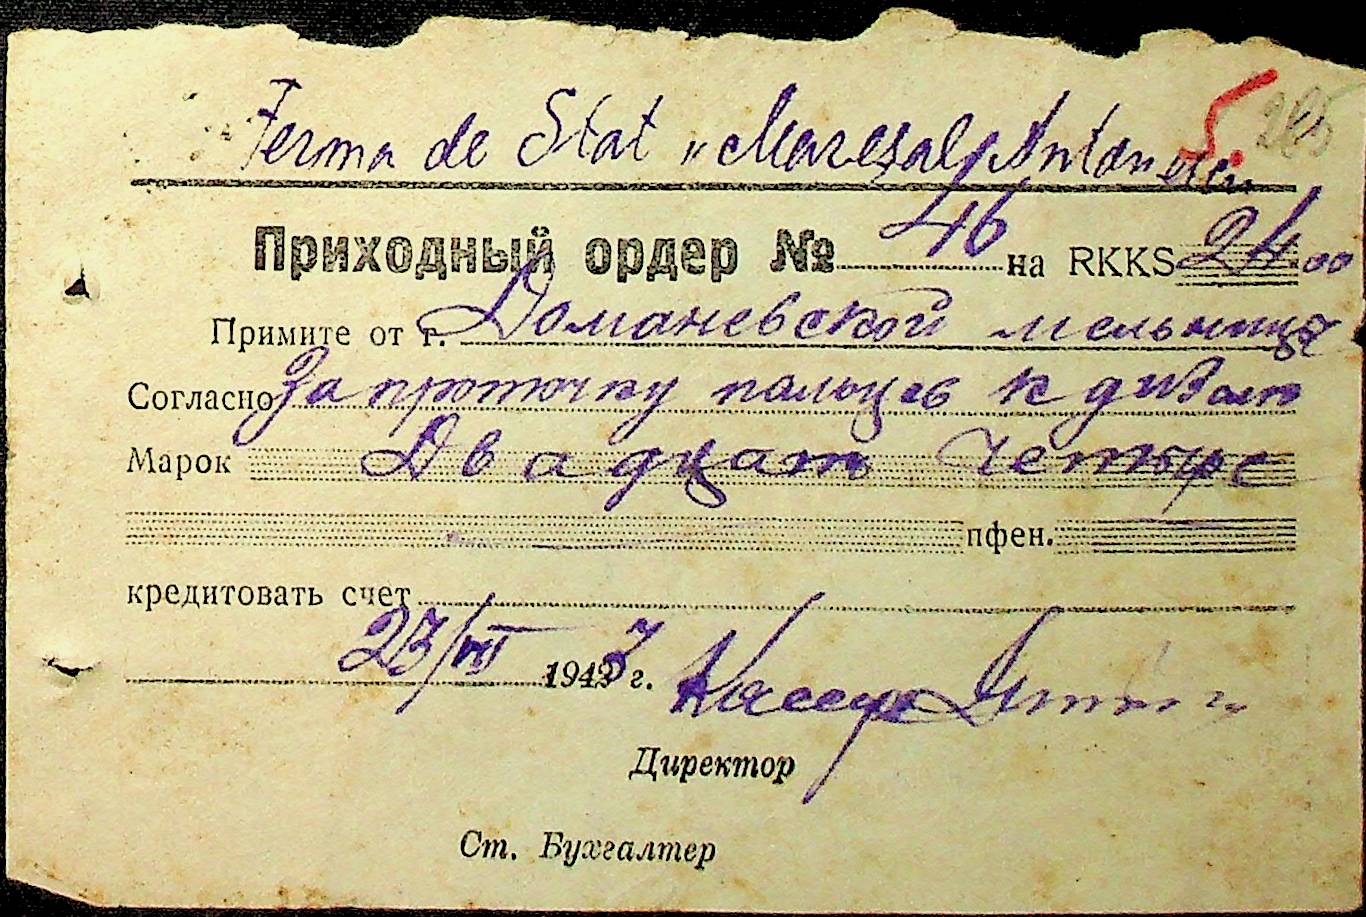 5. 265
Ferma de Stat „Mareşal Antonescu"
Приходный ордер № 46 на RKKS 24.00
Примите от г. Доманевской мельницы
Согласно За проточку пальцев к дизелю
Марок Двадцать четыре
пфен.
кредитовать счет
23/VII 1943 г. Кассир
Директор
Ст. Бухгалтер